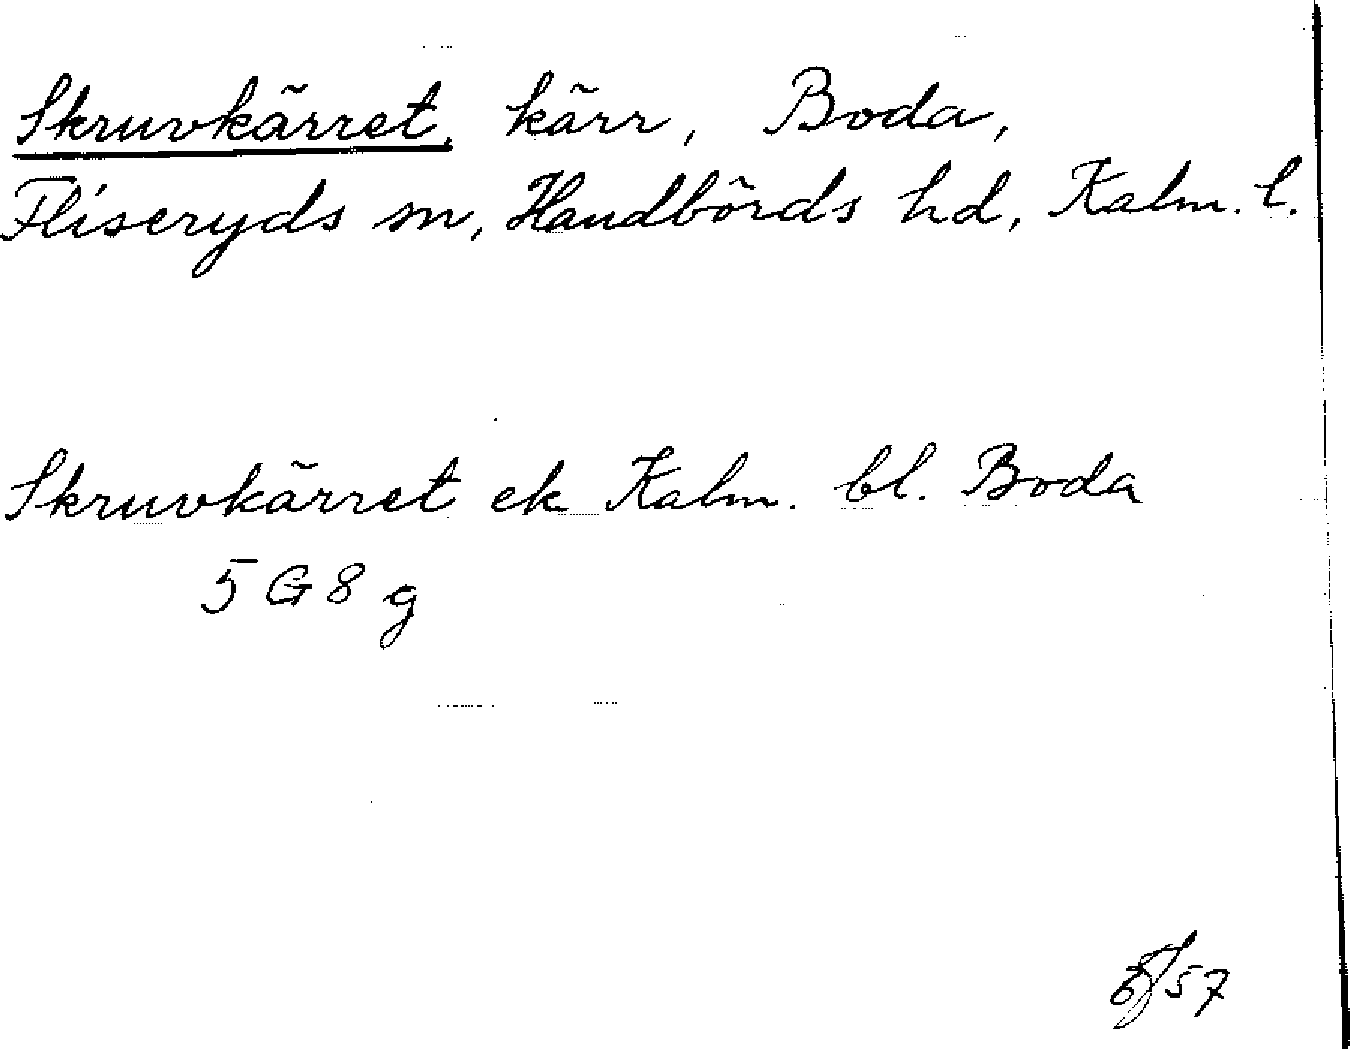 Skruvkärret, kärr, Boda,
Fliseryds sn, Handbörds hd, Kalm. l.
Skruvkärret ek Kalm. bl. Boda
5 G 8 g